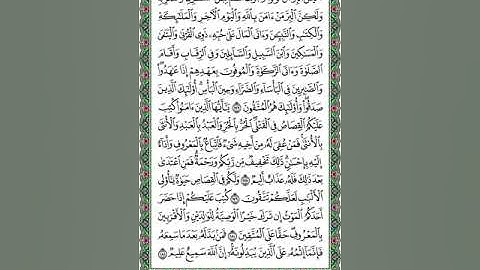 وَلَٰكِنَّ ٱلْبِرَّ مَنْ ءَامَنَ بِٱللَّهِ وَٱلْيَوْمِ ٱلْءَاخِرِ وَٱلْمَلَٰٓئِكَةِ
وَٱلْكِتَٰبِ وَٱلنَّبِيِّۦنَ وَءَاتَى ٱلْمَالَ عَلَىٰ حُبِّهِۦ ذَوِى ٱلْقُرْبَىٰ وَٱلْيَتَٰمَىٰ
وَٱلْمَسَٰكِينَ وَٱبْنَ ٱلسَّبِيلِ وَٱلسَّآئِلِينَ وَفِى ٱلرِّقَابِ وَأَقَامَ
ٱلصَّلَوٰةَ وَءَاتَى ٱلزَّكَوٰةَ وَٱلْمُوفُونَ بِعَهْدِهِمْ إِذَا عَٰهَدُوا۟
وَٱلصَّٰبِرِينَ فِى ٱلْبَأْسَآءِ وَٱلضَّرَّآءِ وَحِينَ ٱلْبَأْسِ أُو۟لَٰٓئِكَ ٱلَّذِينَ
صَدَقُوا۟ وَأُو۟لَٰٓئِكَ هُمُ ٱلْمُتَّقُونَ ١٧٧ يَٰٓأَيُّهَا ٱلَّذِينَ ءَامَنُوا۟ كُتِبَ
عَلَيْكُمُ ٱلْقِصَاصُ فِى ٱلْقَتْلَى ٱلْحُرُّ بِٱلْحُرِّ وَٱلْعَبْدُ بِٱلْعَبْدِ وَٱلْأُنثَىٰ
بِٱلْأُنثَىٰ فَمَنْ عُفِىَ لَهُۥ مِنْ أَخِيهِ شَىْءٌ فَٱتِّبَاعٌۢ بِٱلْمَعْرُوفِ وَأَدَآءٌ
إِلَيْهِ بِإِحْسَٰنٍ ذَٰلِكَ تَخْفِيفٌ مِّن رَّبِّكُمْ وَرَحْمَةٌ فَمَنِ ٱعْتَدَىٰ
بَعْدَ ذَٰلِكَ فَلَهُۥ عَذَابٌ أَلِيمٌ ١٧٨ وَلَكُمْ فِى ٱلْقِصَاصِ حَيَوٰةٌ يَٰٓأُو۟لِى
ٱلْأَلْبَٰبِ لَعَلَّكُمْ تَتَّقُونَ ١٧٩ كُتِبَ عَلَيْكُمْ إِذَا حَضَرَ
أَحَدَكُمُ ٱلْمَوْتُ إِن تَرَكَ خَيْرًا ٱلْوَصِيَّةُ لِلْوَٰلِدَيْنِ وَٱلْأَقْرَبِينَ
بِٱلْمَعْرُوفِ حَقًّا عَلَى ٱلْمُتَّقِينَ ١٨٠ فَمَنۢ بَدَّلَهُۥ بَعْدَ مَا سَمِعَهُۥ
فَإِنَّمَآ إِثْمُهُۥ عَلَى ٱلَّذِينَ يُبَدِّلُونَهُۥٓ إِنَّ ٱللَّهَ سَمِيعٌ عَلِيمٌ ١٨١